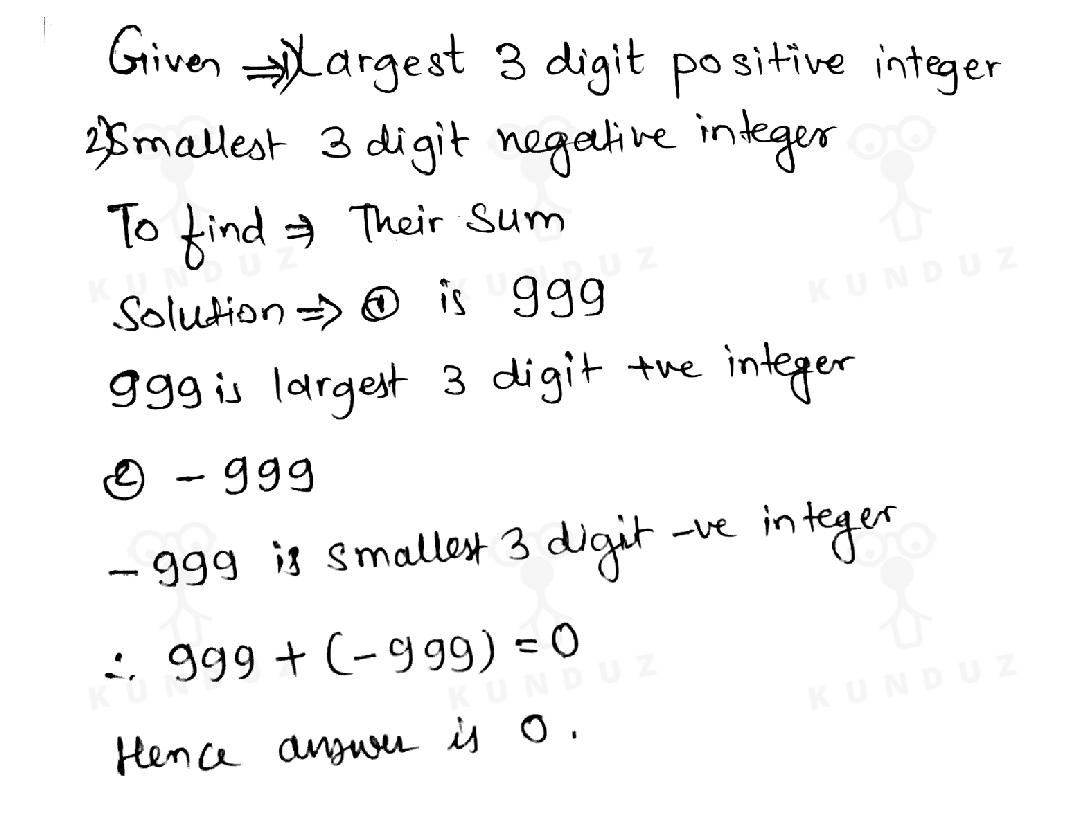 Given ⇒ 1) Largest 3 digit positive integer
2) Smallest 3 digit negative integer
To find ⇒ Their Sum
Solution ⇒ ① is 999
999 is largest 3 digit +ve integer
② - 999
- 999 is smallest 3 digit -ve integer
∴ 999 + (-999) = 0
Hence answer is 0.
KUNDUZ
KUNDUZ
KUNDUZ
KUNDUZ
KUNDUZ
KUNDUZ